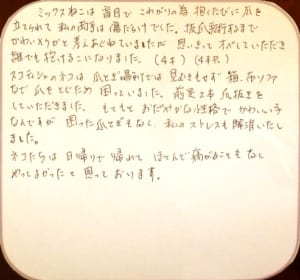 ミックスねこは 盲目で こわがりの為 抱くたびに 爪を
立てられて 私の両手は 傷だらけでした。抜爪術するまで
かわいそうかと 考えあぐねていましたが 思いきって オペしていただき
誰でも 抱けるこになりました。(4才) (4キロ)
スコティッシュのネコは 爪とぎ場所では 見むきもせず 箱、布ソファ
などで 爪をとぐため 困っていました。前足2本 爪抜きを
していただきました。もともと おだやかな性格で かわいい子
なんですが 困った爪とぎもなく、私のストレスも 解消いたし
ました。
ネコたちは 日帰りで 帰れて ほとんど痛がることも なく
やってよかったと 思って おります。